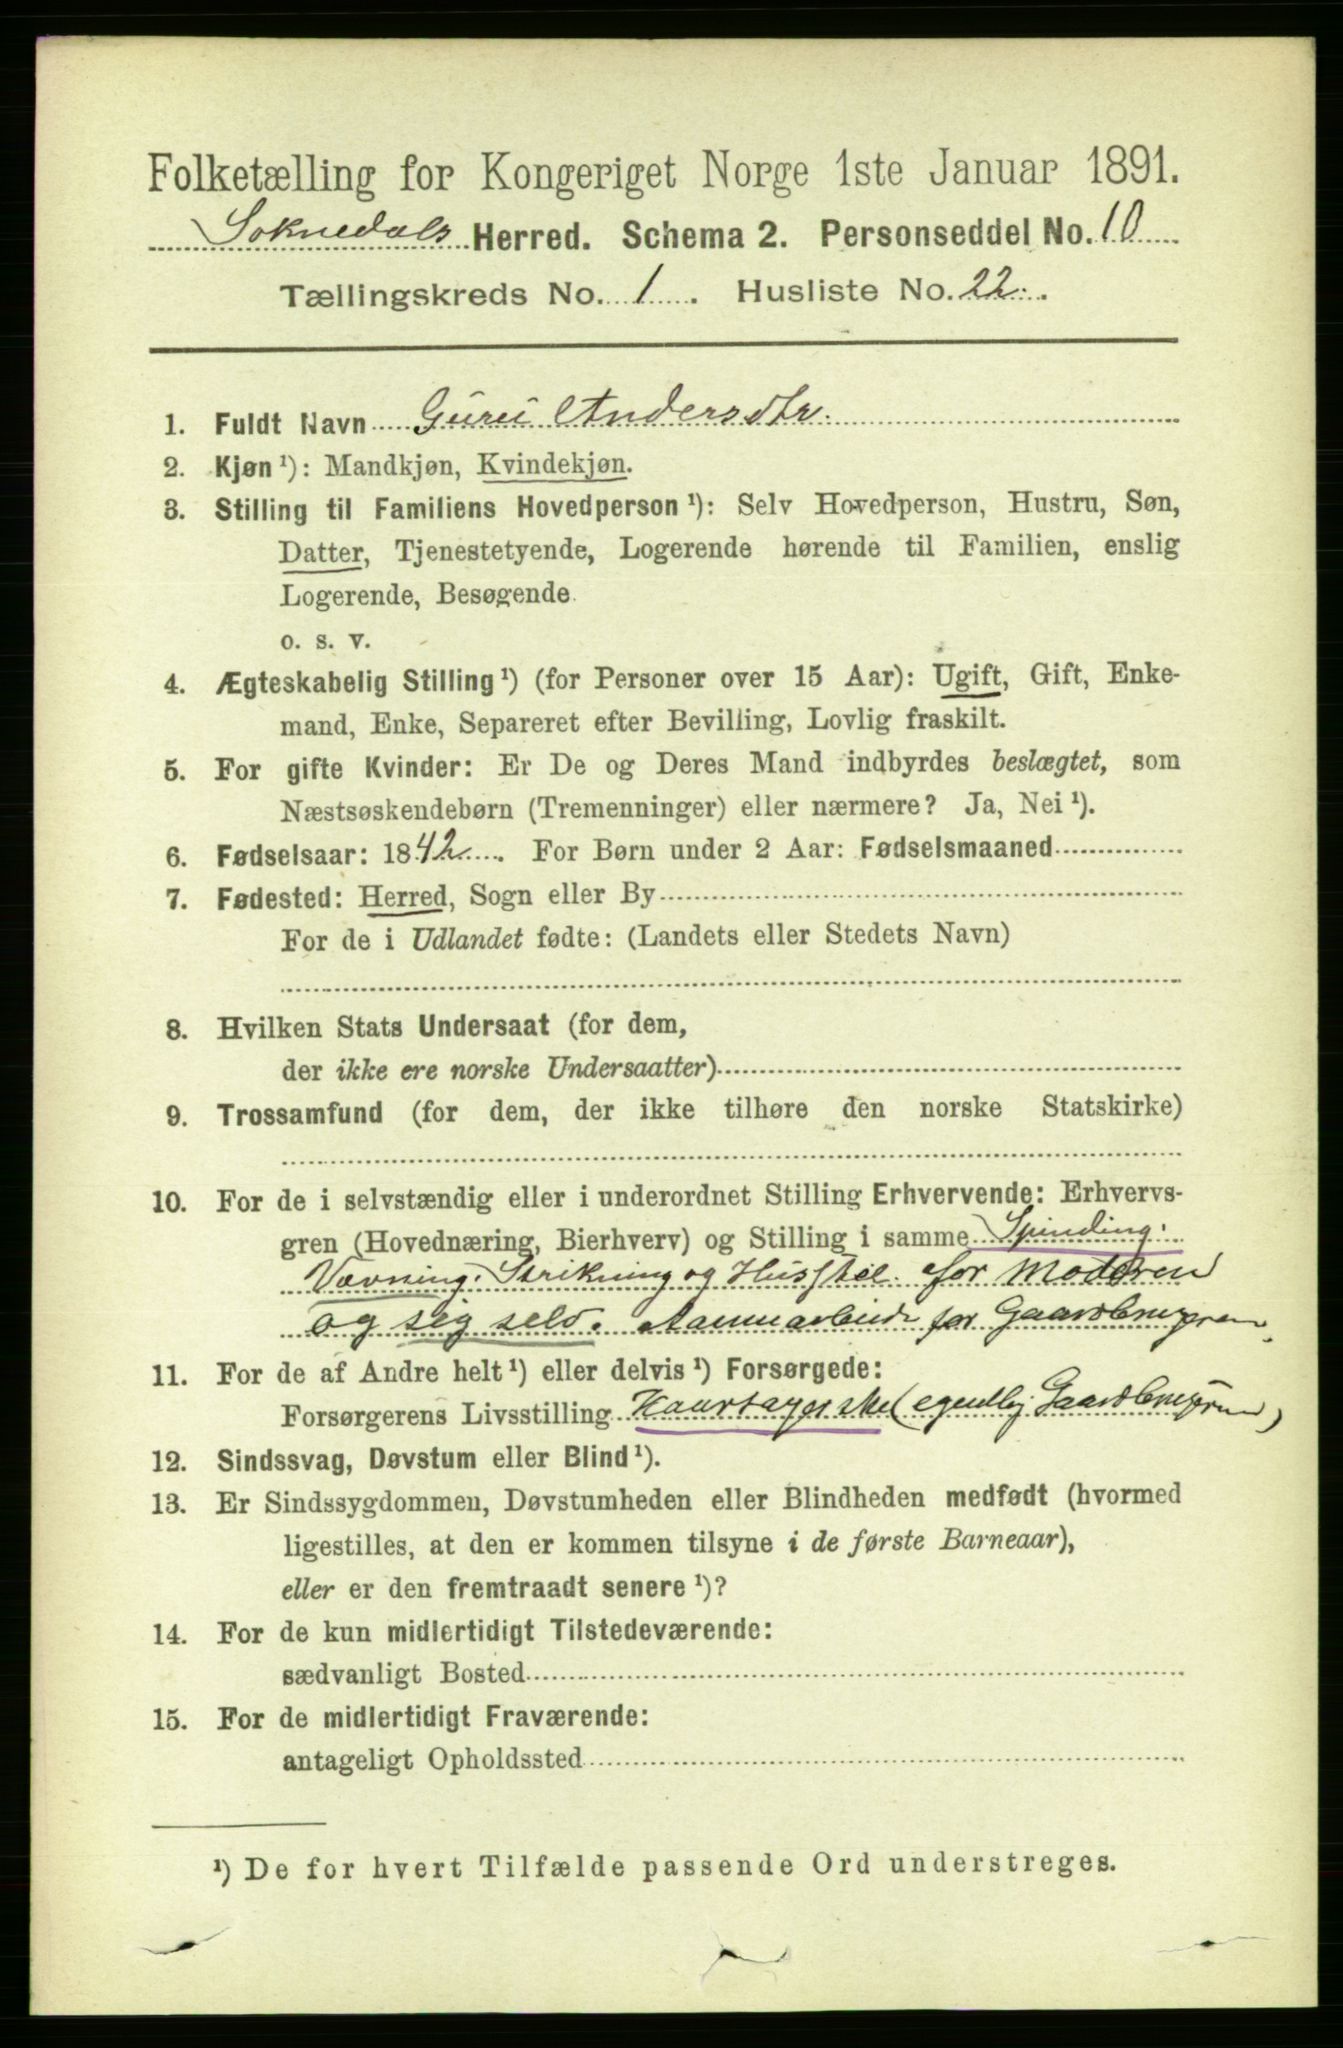 Folketælling for Kongeriget Norge 1ste Januar 1891.
Soknedals Herred. Schema 2. Personseddel No. 10
Tællingskreds No. 1. Husliste No. 22.
1. Fuldt Navn Guru Andersdtr.
2. Kjøn ¹): Mandkjøn, Kvindekjøn.
3. Stilling til Familiens Hovedperson ¹): Selv Hovedperson, Hustru, Søn,
Datter, Tjenestetyende, Logerende hørende til Familien, enslig
Logerende, Besøgende
o. s. v.
4. Ægteskabelig Stilling ¹) (for Personer over 15 Aar): Ugift, Gift, Enke-
mand, Enke, Separeret efter Bevilling, Lovlig fraskilt.
5. For gifte Kvinder: Er De og Deres Mand indbyrdes beslægtet, som
Næstsøskendebørn (Tremenninger) eller nærmere? Ja, Nei ¹).
6. Fødselsaar: 1842. For Børn under 2 Aar: Fødselsmaaned
7. Fødested: Herred, Sogn eller By
For de i Udlandet fødte: (Landets eller Stedets Navn)
8. Hvilken Stats Undersaat (for dem,
der ikke ere norske Undersaatter)
9. Trossamfund (for dem, der ikke tilhøre den norske Statskirke)
10. For de i selvstændig eller i underordnet Stilling Erhvervende: Erhvervs-
gren (Hovednæring, Bierhverv) og Stilling i samme Spinding.
Vævning. Strikning og Husstel for Moderen
og sig selv. for Gaardbrugeren.
11. For de af Andre helt ¹) eller delvis ¹) Forsørgede:
Forsørgerens Livsstilling Kaartagerske (egentlig Gaardbrugeren)
12. Sindssvag, Døvstum eller Blind ¹).
13. Er Sindssygdommen, Døvstumheden eller Blindheden medfødt (hvormed
ligestilles, at den er kommen tilsyne i de første Barneaar),
eller er den fremtraadt senere ¹)?
14. For de kun midlertidigt Tilstedeværende:
sædvanligt Bosted
15. For de midlertidigt Fraværende:
antageligt Opholdssted
¹) De for hvert Tilfælde passende Ord understreges.